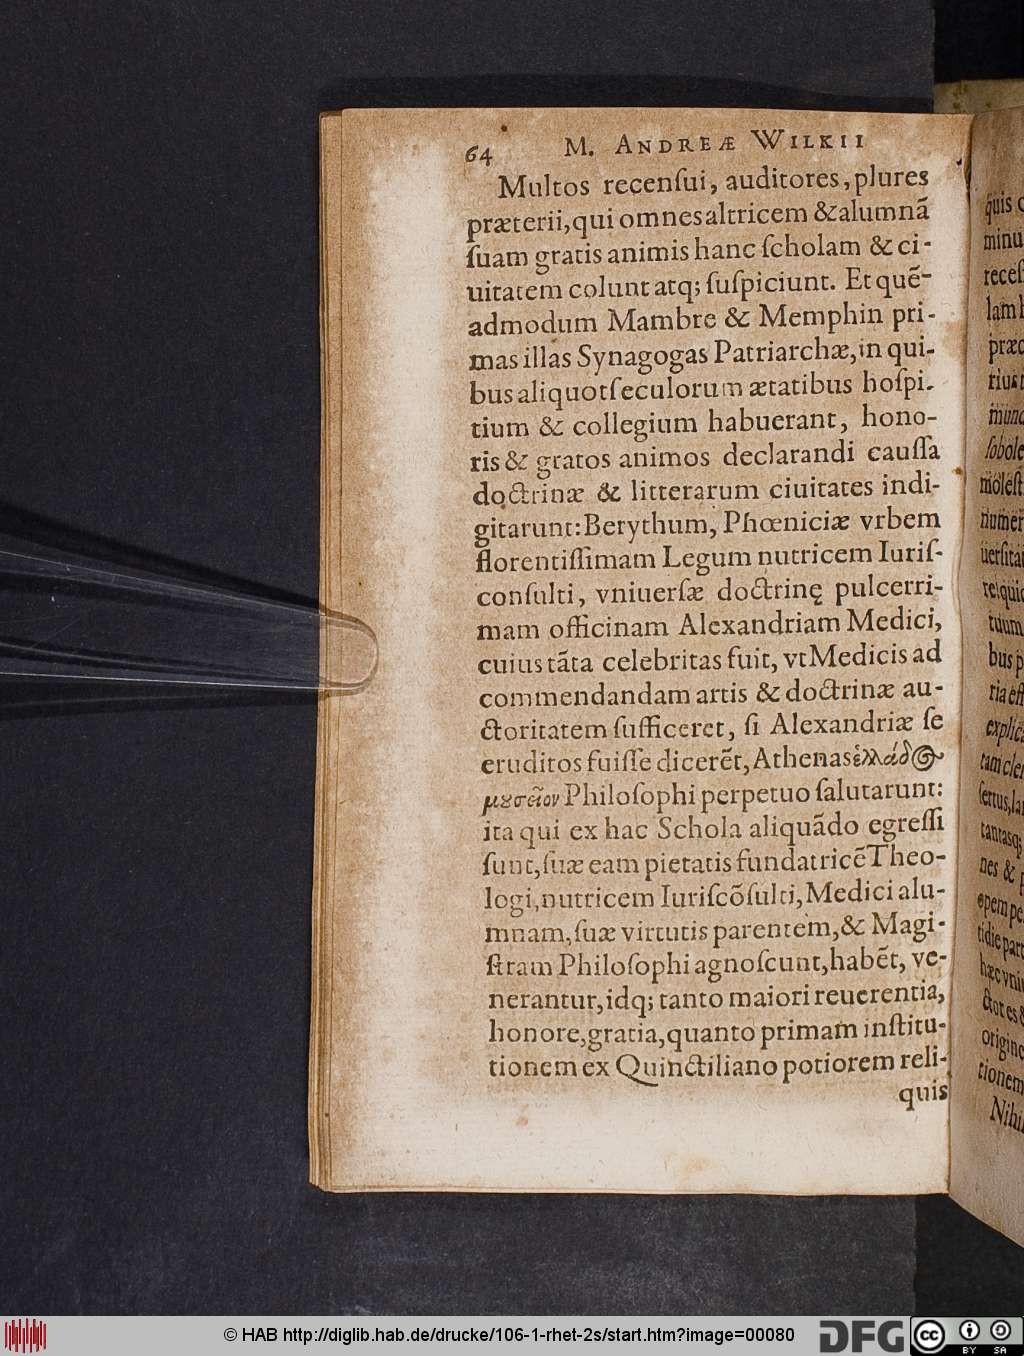 64 M. ANDREÆ WILKII
Multos recenſui, auditores, plures
præterii, qui omnes altricem & alumnã
ſuam gratis animis hanc ſcholam & ci-
uitatem colunt atq; ſuſpiciunt. Et quẽ-
admodum Mambre & Memphin pri-
mas illas Synagogas Patriarchæ, in qui-
bus aliquot ſeculorum ætatibus hoſpi-
tium & collegium habuerant, hono-
ris & gratos animos declarandi cauſſa
doctrinæ & litterarum ciuitates indi-
gitarunt: Berythum, Phœniciæ vrbem
florentiſſimam Legum nutricem Iuriſ-
conſulti, vniuerſæ doctrinę pulcerri-
mam officinam Alexandriam Medici,
cuius tãta celebritas fuit, vt Medicis ad
commendandam artis & doctrinæ au-
ctoritatem ſufficeret, ſi Alexandriæ ſe
eruditos fuiſſe dicerẽt, Athenas ἑλλάδος
μουσεῖον Philoſophi perpetuo ſalutarunt:
ita qui ex hac Schola aliquãdo egreſſi
ſunt, ſuæ eam pietatis fundatricẽ Theo-
logi, nutricem Iuriſcõſulti, Medici alu-
mnam, ſuæ virtutis parentem, & Magi-
ſtram Philoſophi agnoſcunt, habẽt, ve-
nerantur, idq; tanto maiori reuerentia,
honore, gratia, quanto primam inſtitu-
tionem ex Quinctiliano potiorem reli-
quis
quis
minu
receſ
lam
præc
rius
ſobole
moleſt
numer
uerſita
reliqui
tuum
bus p
ria eſt
explic
tam cle
ſertus, la
tantasq;
nes & p
opem pe
tidie part
hæc vni
ctores &
origine
tionem
Nihi
© HAB http://diglib.hab.de/drucke/106-1-rhet-2s/start.htm?image=00080
DFG
cc BY SA